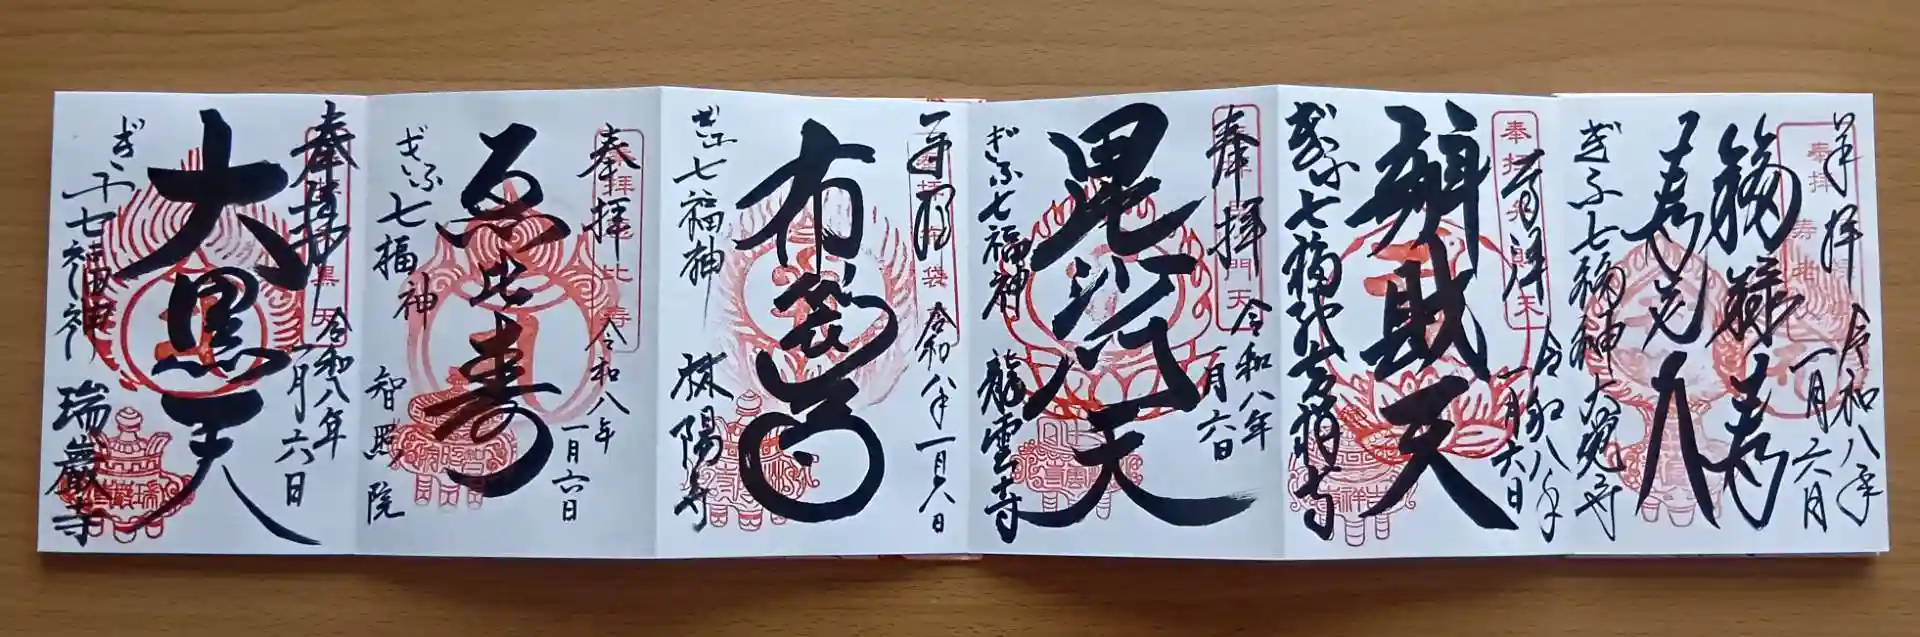 奉拝
令和八年
一月六日
福禄寿
寿老人
ぎふ七福神 大覚寺
奉拝
令和八年
一月六日
辨財天
ぎふ七福神 吉祥寺
奉拝
令和八年
一月六日
毘沙門天
ぎふ七福神 龍雲寺
奉拝
令和八年一月六日
布袋尊
ぎふ七福神
林陽寺
奉拝
令和八年
一月六日
恵比寿
ぎふ七福神
智照院
奉拝
令和八年
一月六日
大黒天
ぎふ七福神
瑞巌寺